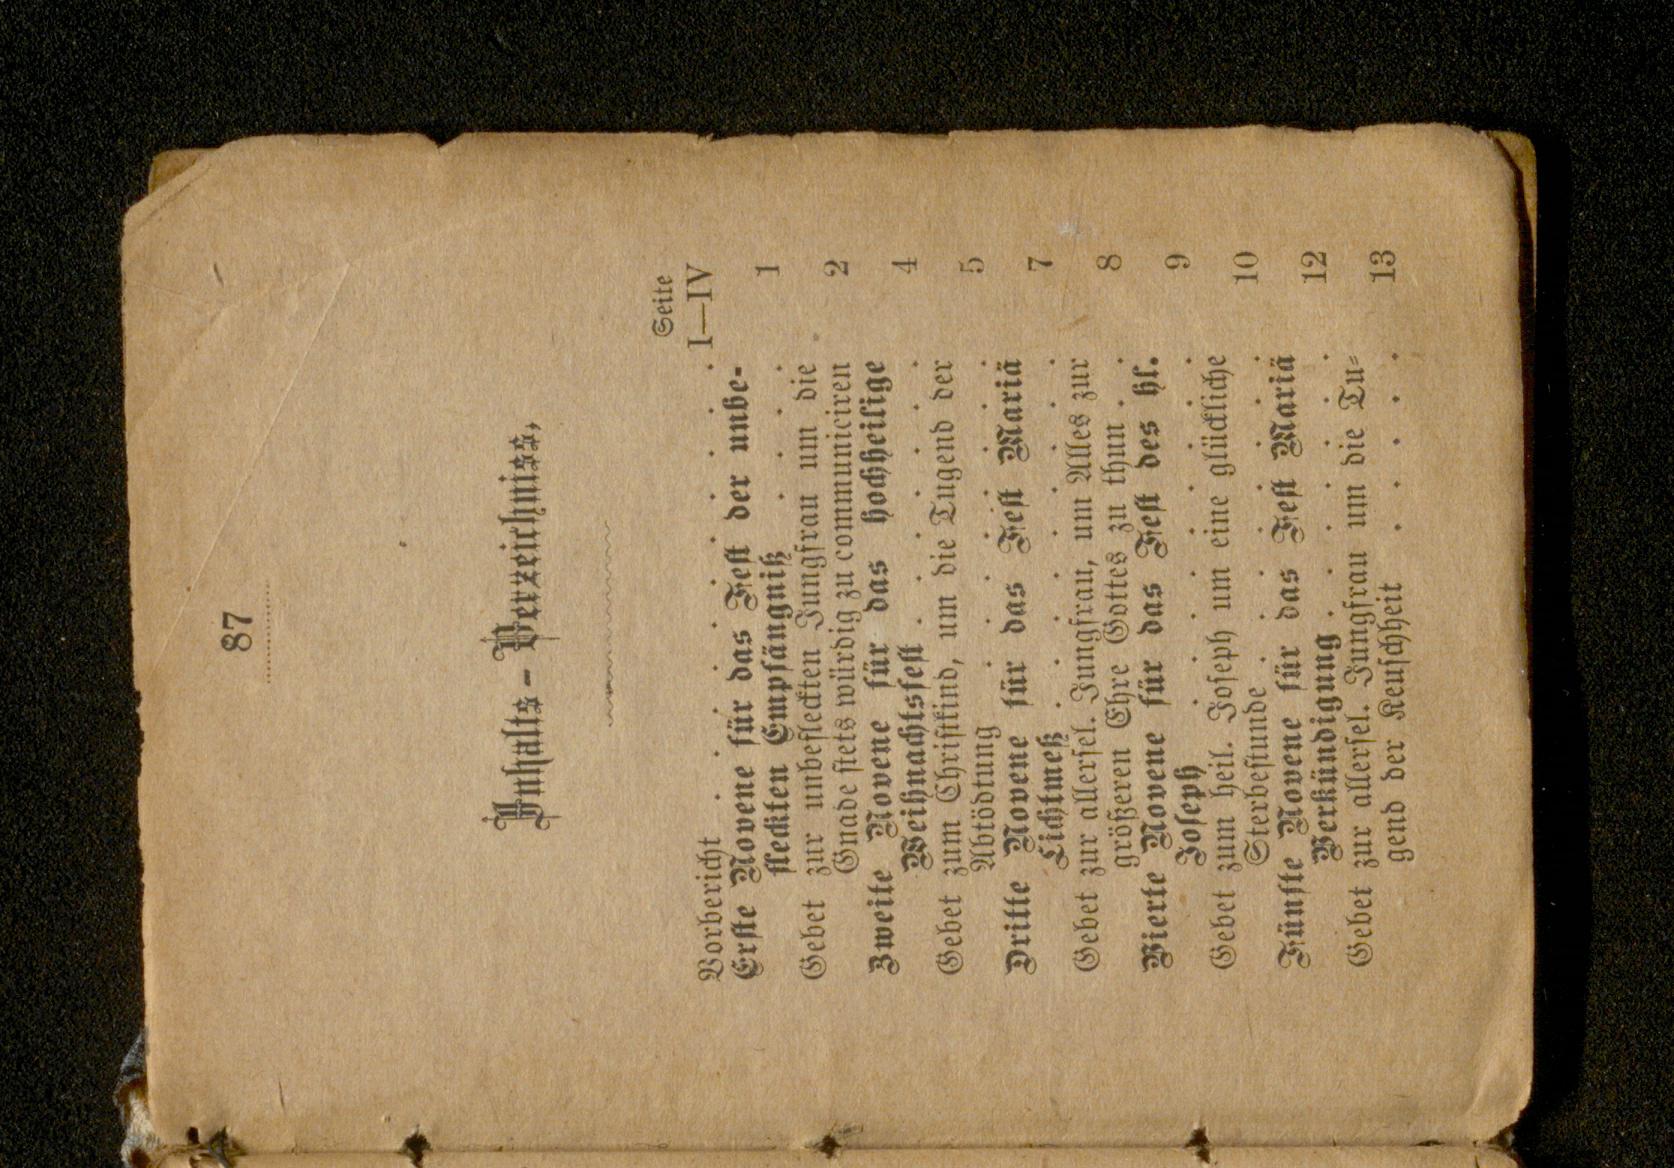 87
Inhalts-Verzeichniss.
Seite
Vorbericht . . . . . . I—IV
Erste Novene für das Fest der unbe-
fleckten Empfängniß . . . 1
Gebet zur unbefleckten Jungfrau um die
Gnade stets würdig zu communiciren 2
Zweite Novene für das hochheilige
Weihnachtsfest . . . . 4
Gebet zum Christkind, um die Tugend der
Abtödtung . . . . . 5
Dritte Novene für das Fest Mariä
Lichtmeß . . . . . . 7
Gebet zur allersel. Jungfrau, um Alles zur
größeren Ehre Gottes zu thun . . 8
Vierte Novene für das Fest des hl.
Joseph . . . . . . 9
Gebet zum heil. Joseph um eine glückliche
Sterbestunde . . . . . 10
Fünfte Novene für das Fest Mariä
Verkündigung . . . . . 12
Gebet zur allersel. Jungfrau um die Tu-
gend der Keuschheit . . . . 13